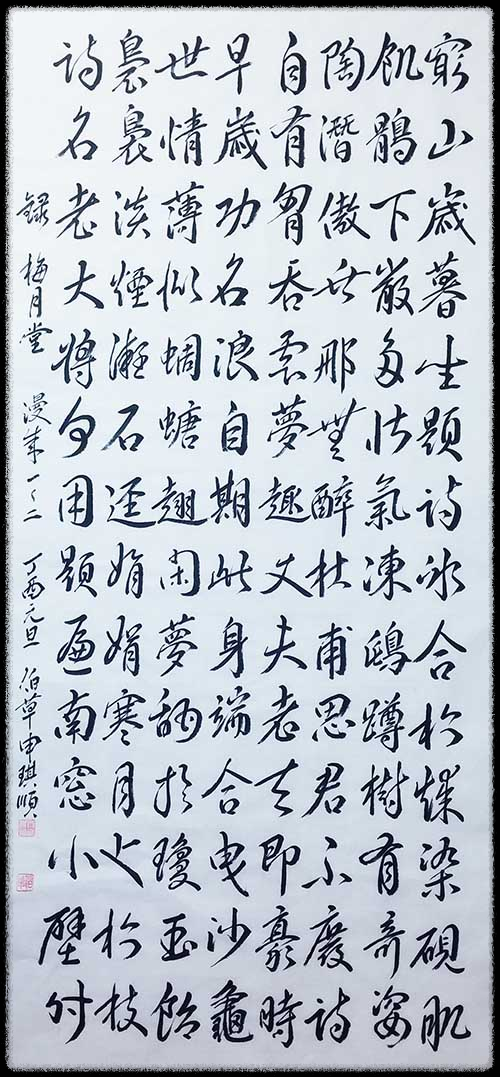 窮山歲暮生題詩氷合松煤染硯肌
飢鶻下嚴多壯氣凍鴟蹲樹有奇姿
陶潛傲世那無醉杜甫思君不廢詩
自有胷吞雲夢趣丈夫老去即豪時
早歲功名浪自期此身端合曳沙龜
世情薄似蜩螗翅閑夢酣於瓊玉飴
裊裊淡煙凝石逕娟娟寒月上松枝
詩名老大將何用題遍南窓小壁付
録 梅月堂 漫成 一、二 丁酉元旦 伯草申琪順